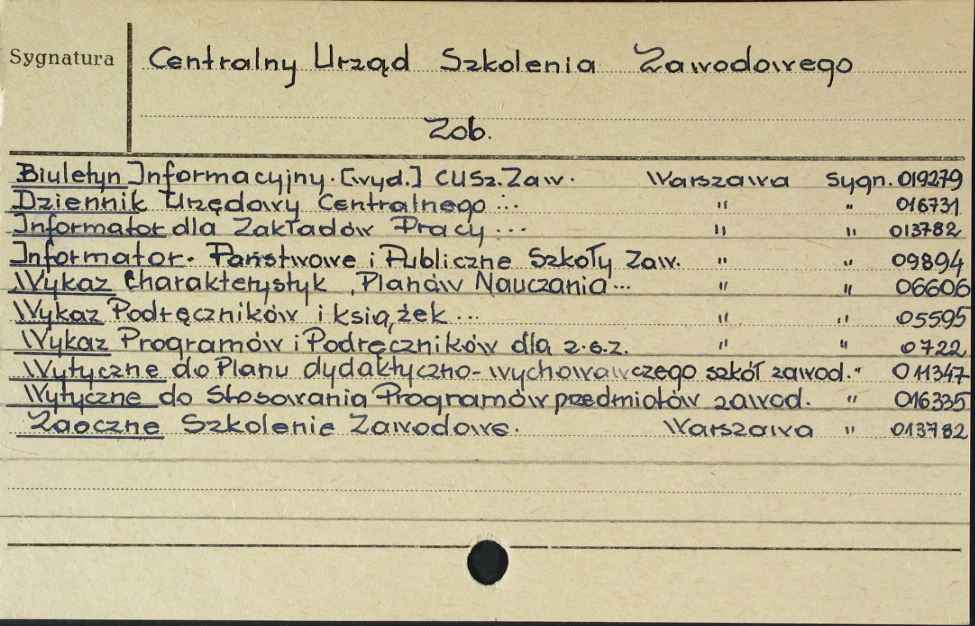 Sygnatura Centralny Urząd Szkolenia Zawodowego
Zob.
Biuletyn Informacyjny. [wyd.] CUSz.Zaw. Warszawa Sygn. 019279
Dziennik Urzędowy Centralnego ... " " 016731
Informator dla Zakładów Pracy ... " " 013782
Informator. Państwowe i Publiczne Szkoły Zaw. " " 09894
Wykaz Charakterystyk, Planów Nauczania ... " " 06606
Wykaz Podręczników i książek ... " " 05595
Wykaz Programów i Podręczników dla z.s.z. " " 0722
Wytyczne do Planu dydaktyczno-wychowawczego szkół zawod. " 011347
Wytyczne do Stosowania Programów przedmiotów zawod. " 016335
Zaoczne Szkolenie Zawodowe. Warszawa " 013782